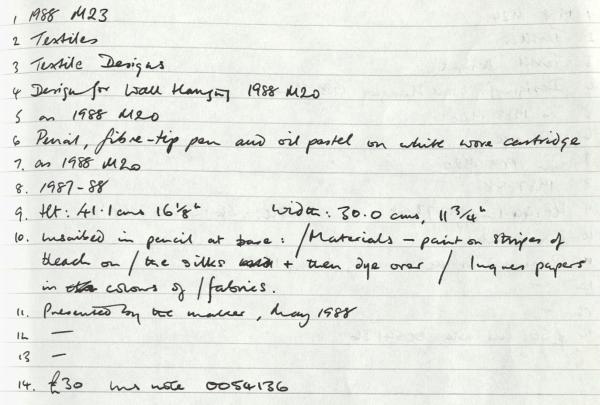 1 1988 M23
2 Textiles
3 Textile Designs
4 Design for Wall Hanging 1988 M20
5 as 1988 M20
6 Pencil, fibre-tip pen and oil pastel on white wove cartridge
7. as 1988 M20
8. 1987-88
9. Ht: 41.1 cms 16 1/8" Width: 30.0 cms, 11 3/4"
10. Inscribed in pencil at base: /Materials - paint on stripes of
bleach on / the silks + then dye over / Ingres papers
in colours of / fabrics.
11. Presented by the maker, May 1988
12 —
13 —
14. £30 ins note 0054136